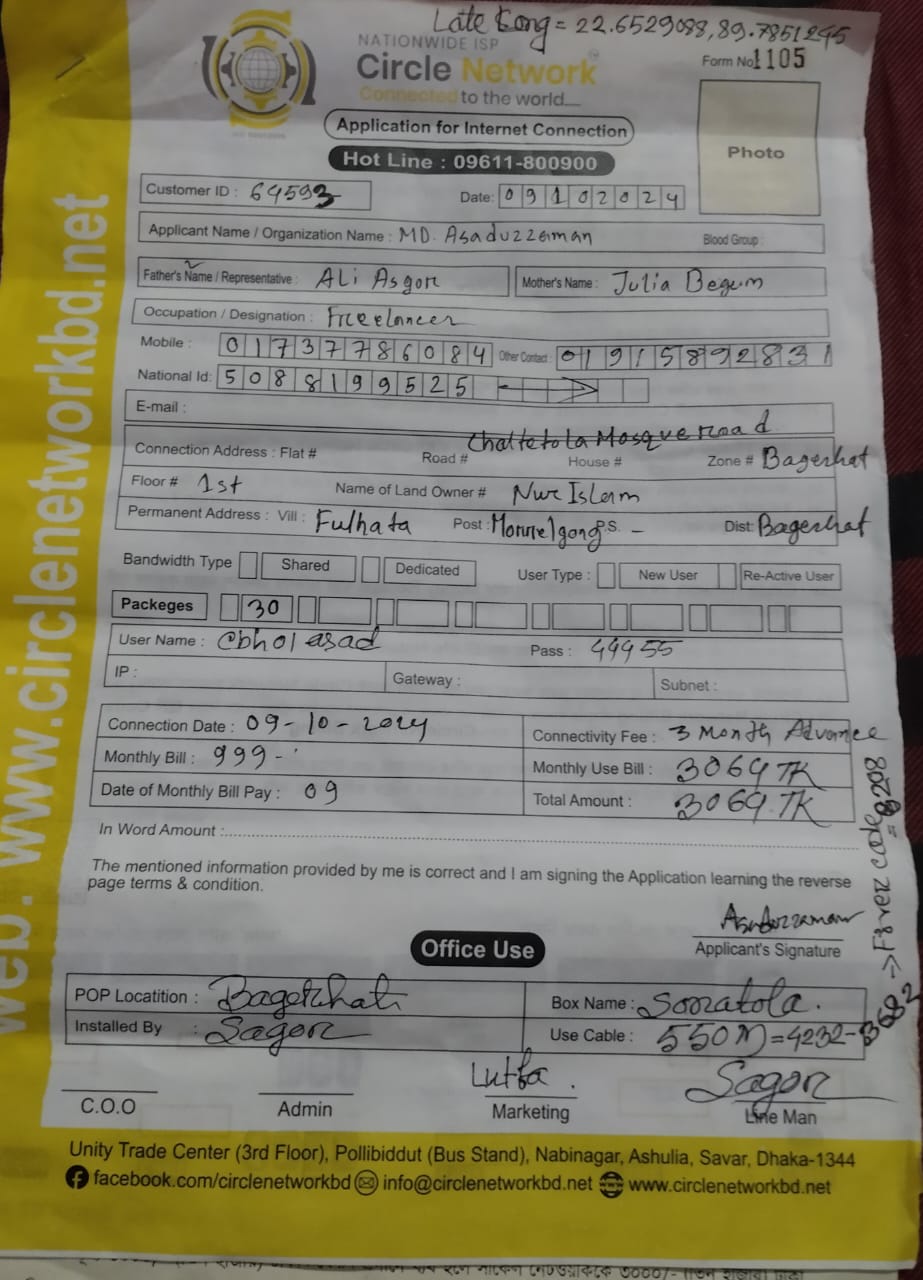 Late Long = 22.6529088,89.7851295
NATIONWIDE ISP
Circle Network
Connected to the world....
Form No 1105
Application for Internet Connection
Hot Line : 09611-800900
Photo
Customer ID : 64593
Date: 09102024
Applicant Name / Organization Name : MD. Asaduzzaman
Blood Group :
Father's Name / Representative : Ali Asgor
Mother's Name : Julia Begum
Occupation / Designation : Freelancer
Mobile : 01737786084 Other Contact : 01915892831
National Id: 5088199525
E-mail :
Chaltetola Mosque road
Connection Address : Flat # Road # House # Zone # Bagerhat
Floor # 1st Name of Land Owner # Nur Islam
Permanent Address : Vill : Fulhata Post : Morrelgong P.S. - Dist: Bagerhat
Bandwidth Type Shared Dedicated User Type : New User Re-Active User
Packeges 30
User Name : cbholasad Pass : 44455
IP : Gateway : Subnet :
Connection Date : 09-10-2024 Connectivity Fee : 3 Month Advance
Monthly Bill : 999- Monthly Use Bill : 3069 TK
Date of Monthly Bill Pay : 09 Total Amount : 3069.TK
In Word Amount :
The mentioned information provided by me is correct and I am signing the Application learning the reverse
page terms & condition.
Asaduzzaman
Applicant's Signature
Office Use
POP Locatition : Bagerhat Box Name : Sonatola.
Installed By : Sagor Use Cable : 550M=4232-3682
-> Fiver code = 8208
Lutfa. Sagor
C.O.O Admin Marketing Line Man
Unity Trade Center (3rd Floor), Pollibiddut (Bus Stand), Nabinagar, Ashulia, Savar, Dhaka-1344
facebook.com/circlenetworkbd info@circlenetworkbd.net www.circlenetworkbd.net
web: www.circlenetworkbd.net